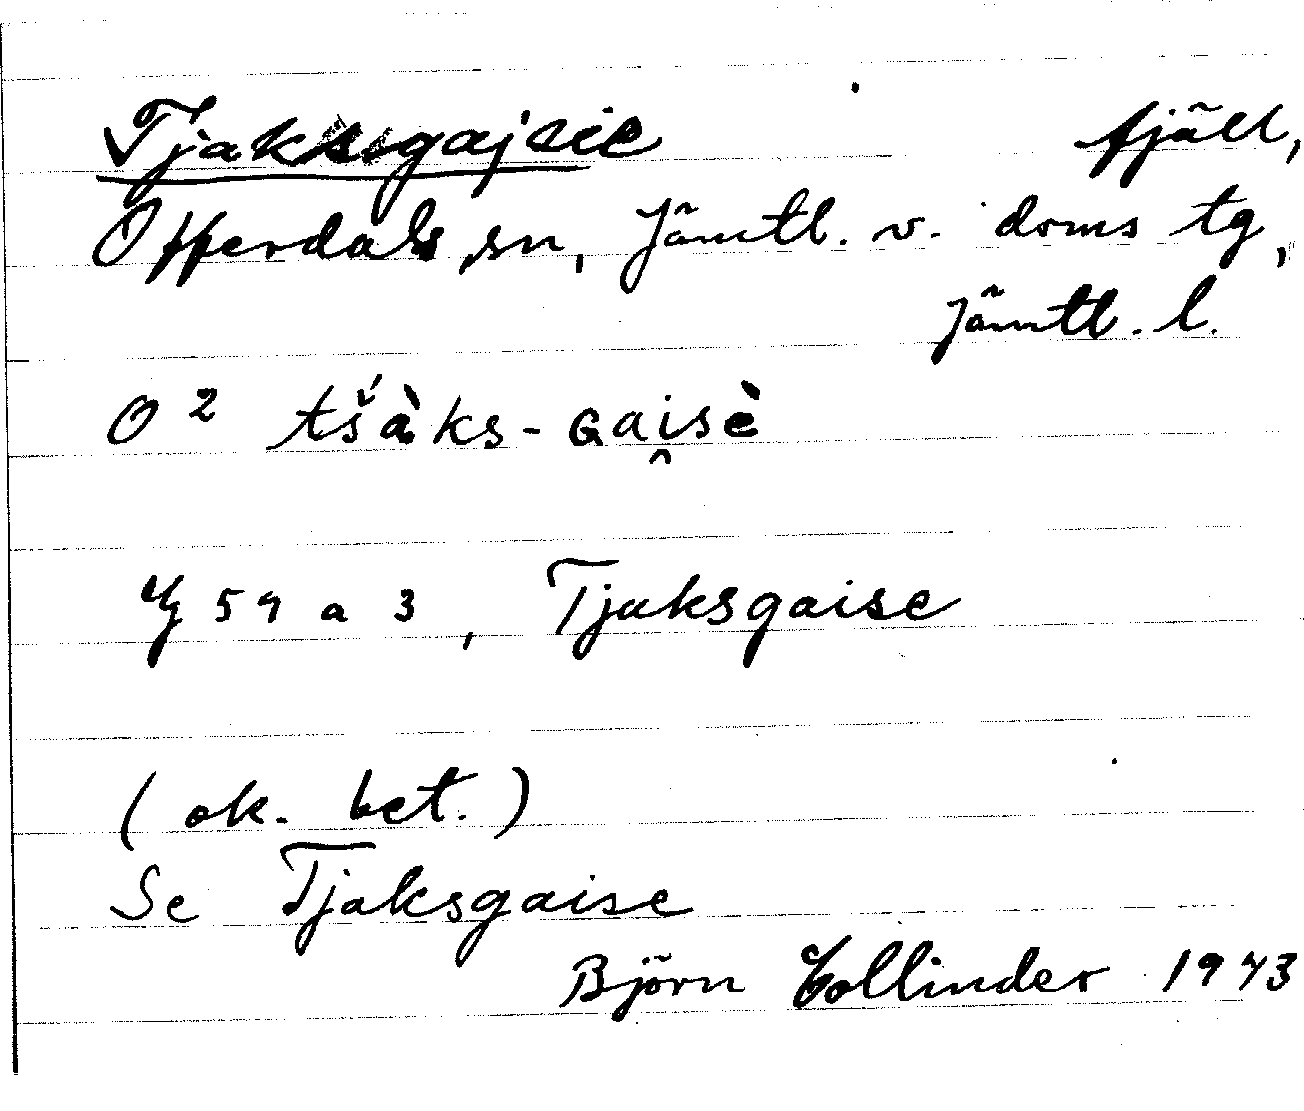 Tjaksgajsie fjäll,
Offerdals sn, Jämtl. v. doms tg,
Jämtl. l.
O 2 tšàks-Gai̭sè
59 a 3, Tjaksgaise
(ok. bet.)
Se Tjaksgaise
Björn Collinder 1943